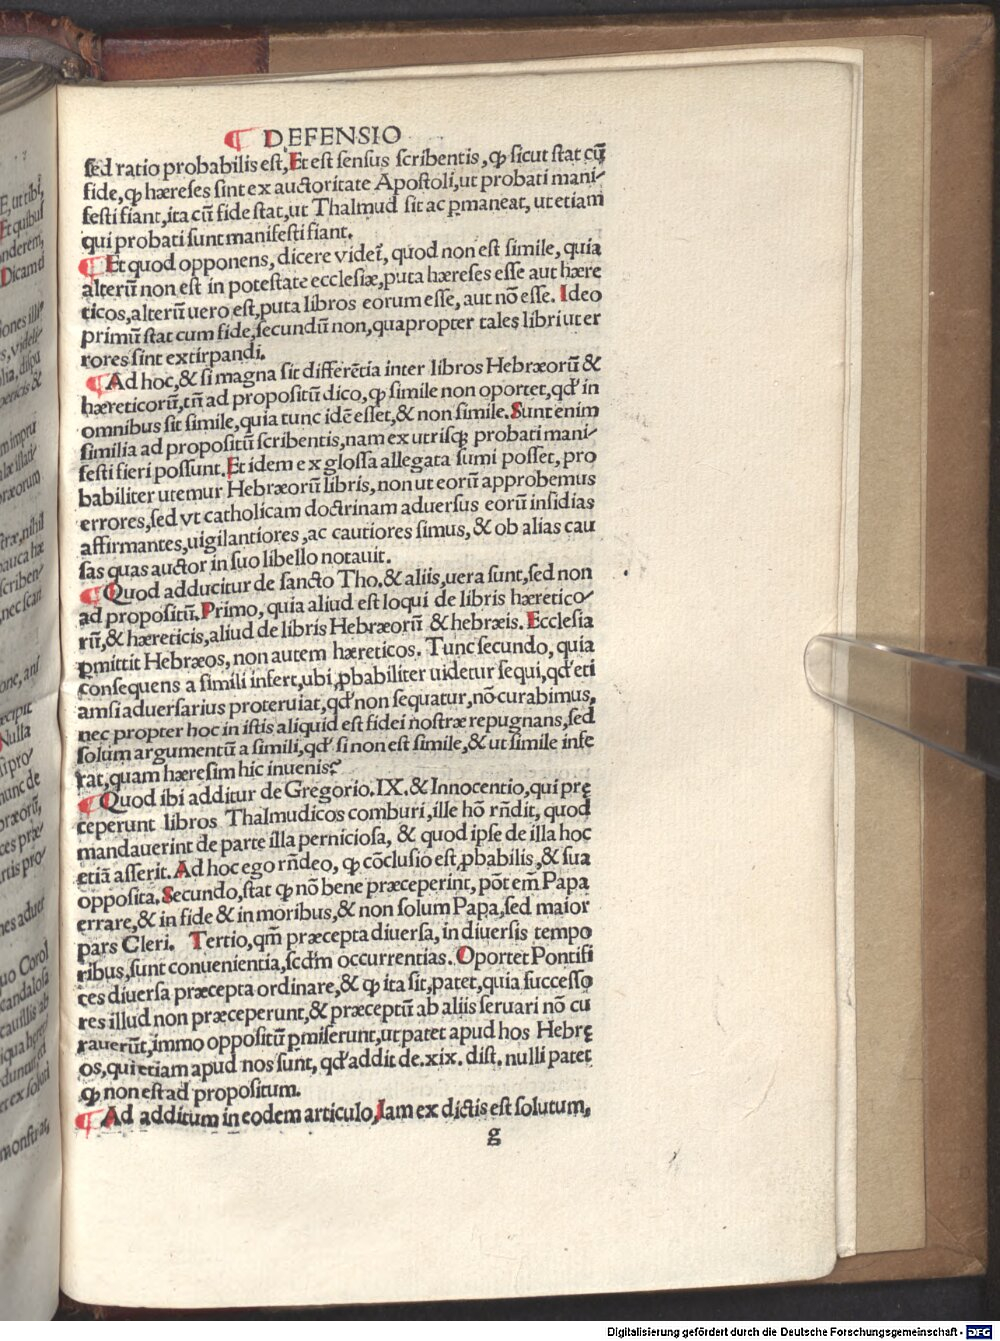 ¶ DEFENSIO
sed ratio probabilis est, Et est sensus scribentis, ꝙ sicut stat cū
fide, ꝙ hæreses sint ex auctoritate Apostoli, ut probati mani-
festi fiant, ita cū fide stat, ut Thalmud sit ac ꝑmaneat, ut etiam
qui probati sunt manifesti fiant.
¶ Et quod opponens, dicere videt̄, quod non est simile, quia
alterū non est in potestate ecclesiæ, puta hæreses esse aut hære
ticos, alterū uero est, puta libros eorum esse, aut nō esse. Ideo
primū stat cum fide, secundū non, quapropter tales libri ut er
rores sint extirpandi.
¶ Ad hoc, & si magna sit differētia inter libros Hebræorū &
hæreticorū, tn̄ ad propositū dico, ꝙ simile non oportet, qd' in
omnibus sit simile, quia tunc idē esset, & non simile. Sunt enim
similia ad propositū scribentis, nam ex utrisq; probati mani-
festi fieri possunt. Et idem ex glossa allegata sumi posset, pro
babiliter utemur Hebræorū libris, non ut eorū approbemus
errores, sed vt catholicam doctrinam aduersus eorū insidias
affirmantes, uigilantiores, ac cautiores simus, & ob alias cau
sas quas auctor in suo libello notauit.
¶ Quod adducitur de sancto Tho. & aliis, uera sunt, sed non
ad propositū. Primo, quia aliud est loqui de libris hæretico-
rū, & hæreticis, aliud de libris Hebræorū & hebræis. Ecclesia
ꝑmittit Hebræos, non autem hæreticos. Tunc secundo, quia
consequens a simili infert, ubi ꝓbabiliter uidetur sequi, qd' eti
amsi aduersarius proteruiat, qd' non sequatur, nō curabimus,
nec propter hoc in istis aliquid est fidei nostræ repugnans, sed
solum argumentū a simili, qd' si non est simile, & ut simile infe
rat, quam hæresim hic inuenis?
¶ Quod ibi additur de Gregorio. IX. & Innocentio, qui prę
ceperunt libros Thalmudicos comburi, ille hō rn̄dit, quod
mandauerint de parte illa perniciosa, & quod ipse de illa hoc
etiā asserit. Ad hoc ego rn̄deo, ꝙ cōclusio est ꝓbabilis, & sua
opposita. Secundo, stat ꝙ nō bene præceperint, pōt em̄ Papa
errare, & in fide & in moribus, & non solum Papa, sed maior
pars Cleri. Tertio, qm̄ præcepta diuersa, in diuersis tempo
ribus, sunt conuenientia, scd'm occurrentias. Oportet Pontifi
ces diuersa præcepta ordinare, & ꝙ ita sit, patet, quia successo
res illud non præceperunt, & præceptū ab aliis seruari nō cu
rauerūt, immo oppositū ꝑmiserunt, ut patet apud hos Hebrę
os, qui etiam apud nos sunt, qd' addit de. xix. dist. nulli patet
ꝙ non est ad propositum.
¶ Ad additum in eodem articulo, Iam ex dictis est solutum,
g
Digitalisierung gefördert durch die Deutsche Forschungsgemeinschaft - DFG